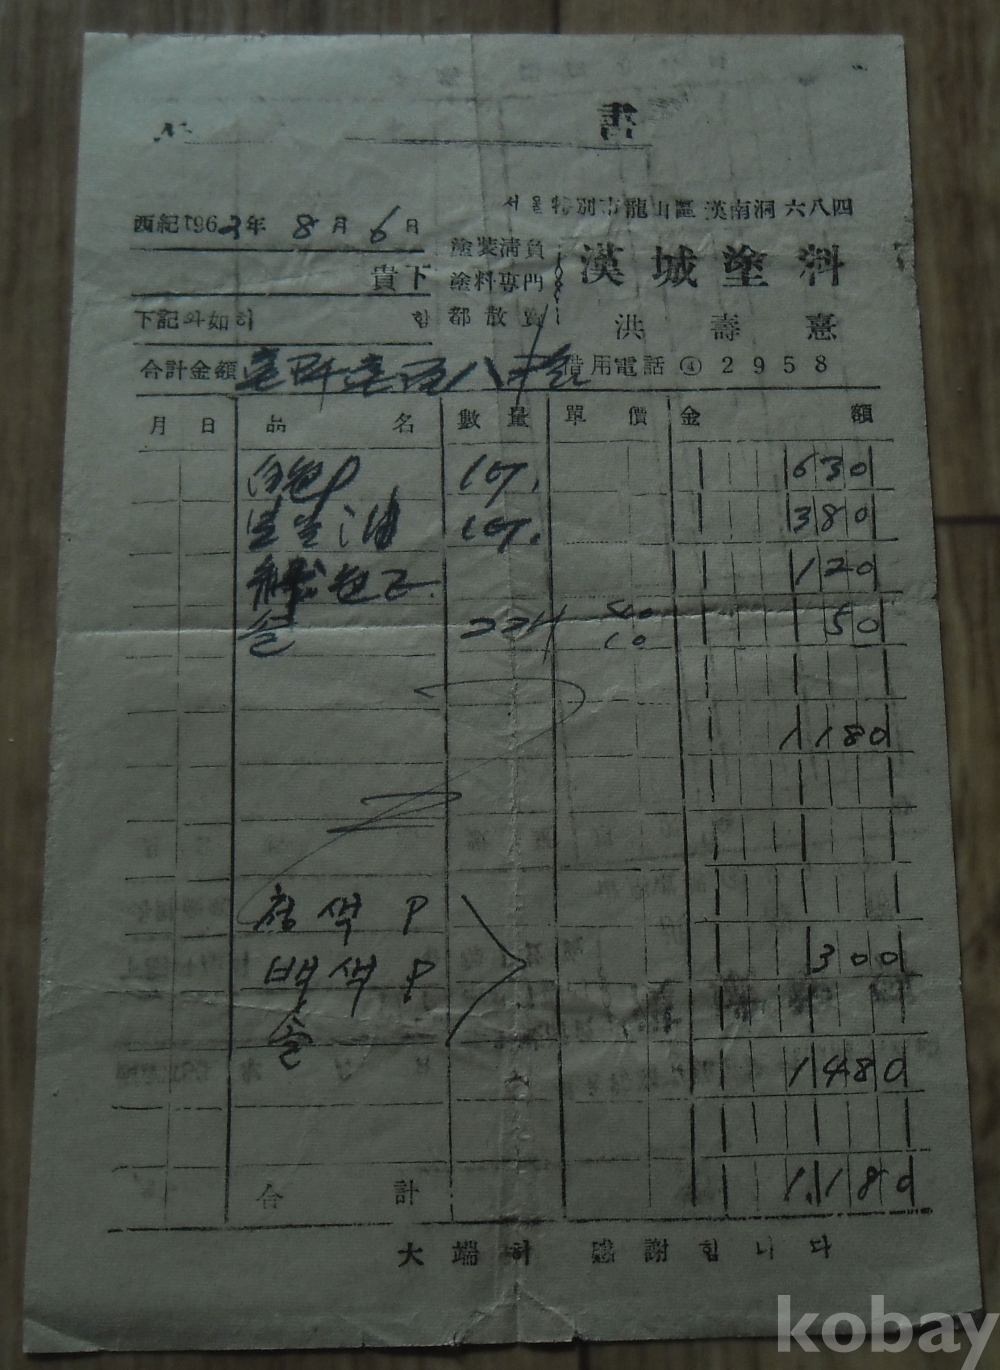 書
서울特別市龍山區漢南洞六八四
西紀1963年 8月 6日
塗裝淸負
塗料專門
都散賣
漢城塗料
貴下
下記와如히 함
洪壽憙
合計金額
借用電話 ④ 2958
月 日 品名 數量 單價 金額
白色P 630
380
120
솔 2개 40 10 50
1180
청색 P
백색 P 300
솔
1480
合計 1,180
大端히 感謝합니다
kobay